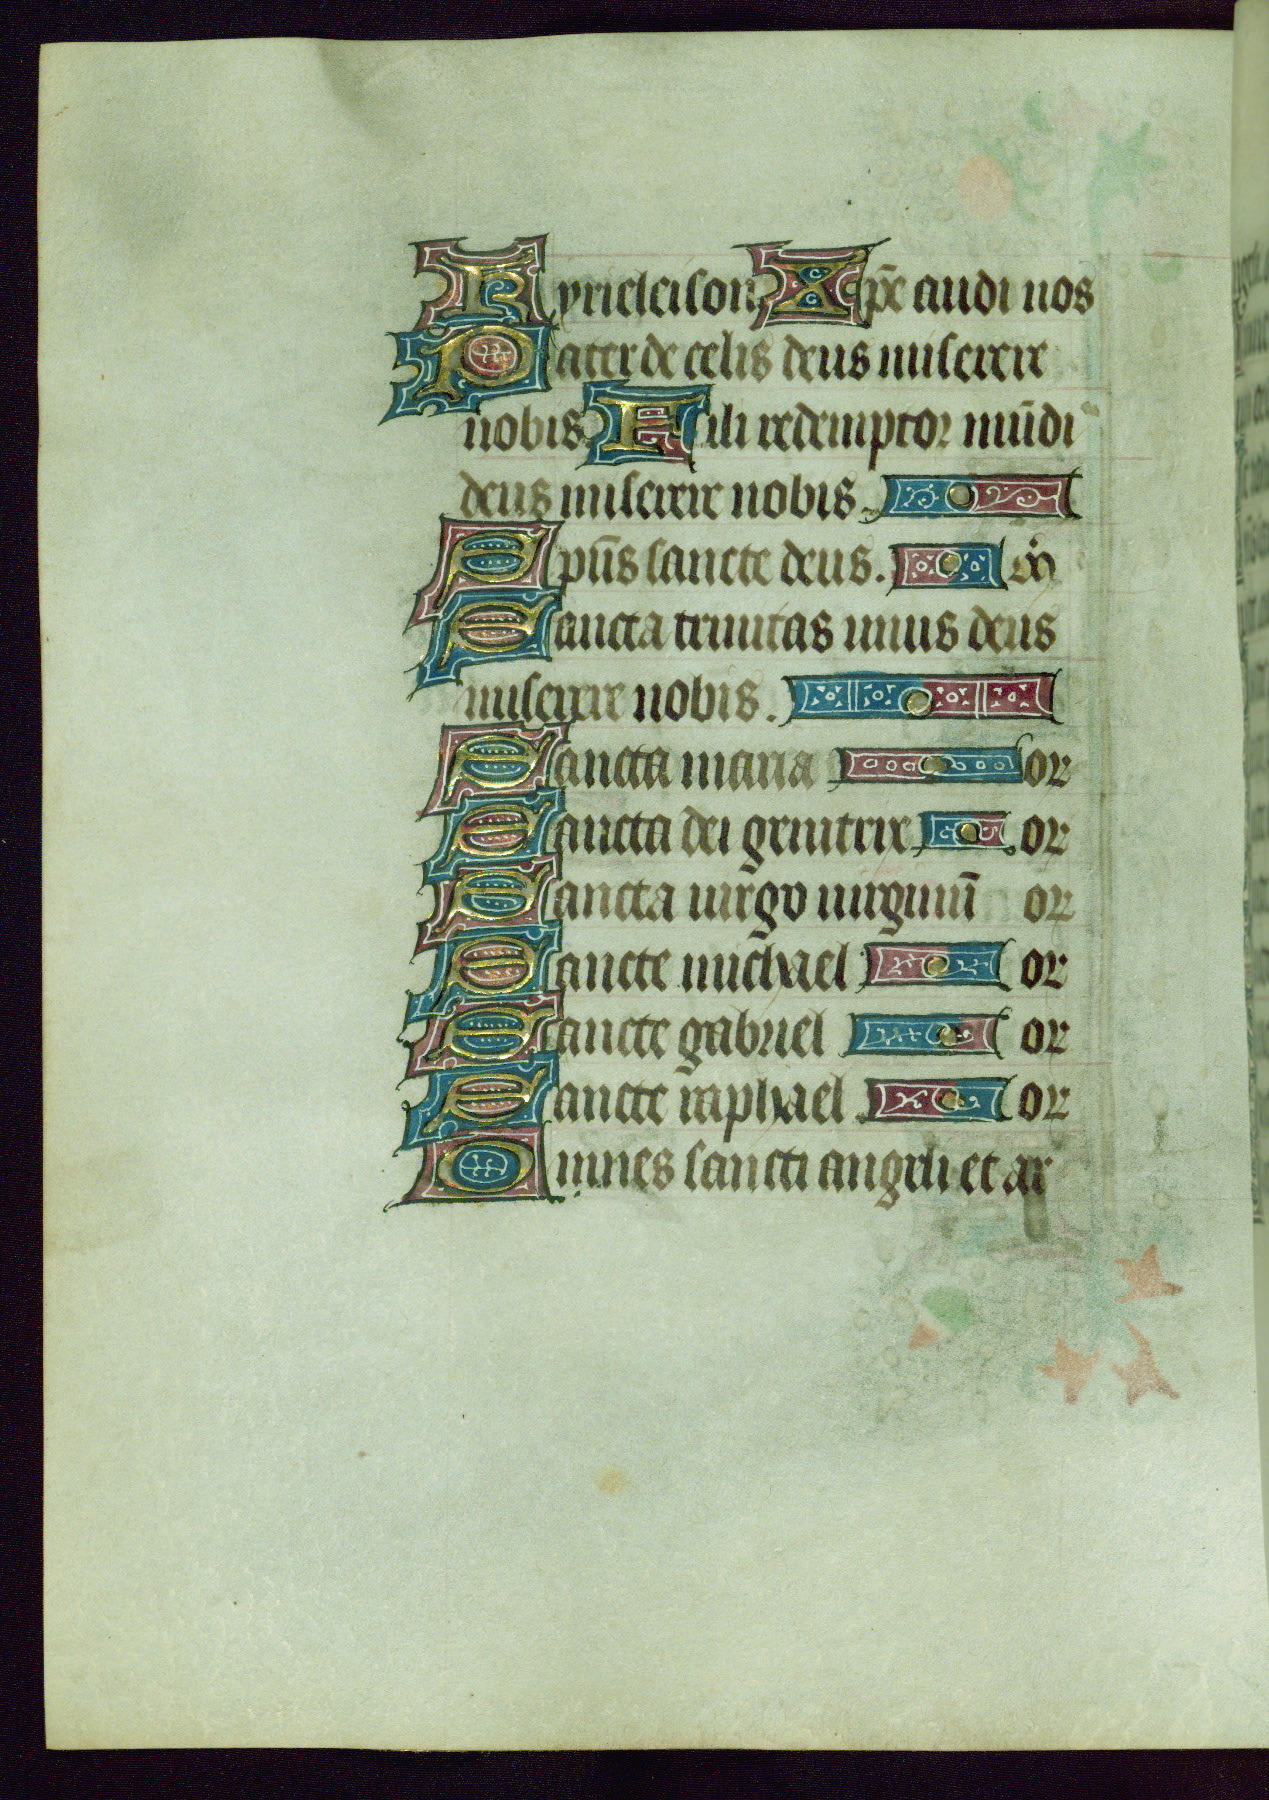 Kyrieleison Xp̄e audi nos
Pater de celis deus miserere
nobis. Fili redemptor mūdi
deus miserere nobis.
Spūs sancte deus. m̄
Sancta trinitas unus deus
miserere nobis.
Sancta maria or
Sancta dei genitrix or
Sancta uirgo uirginū or
Sancte michael or
Sancte gabriel or
Sancte raphael or
Omnes sancti angeli et ar